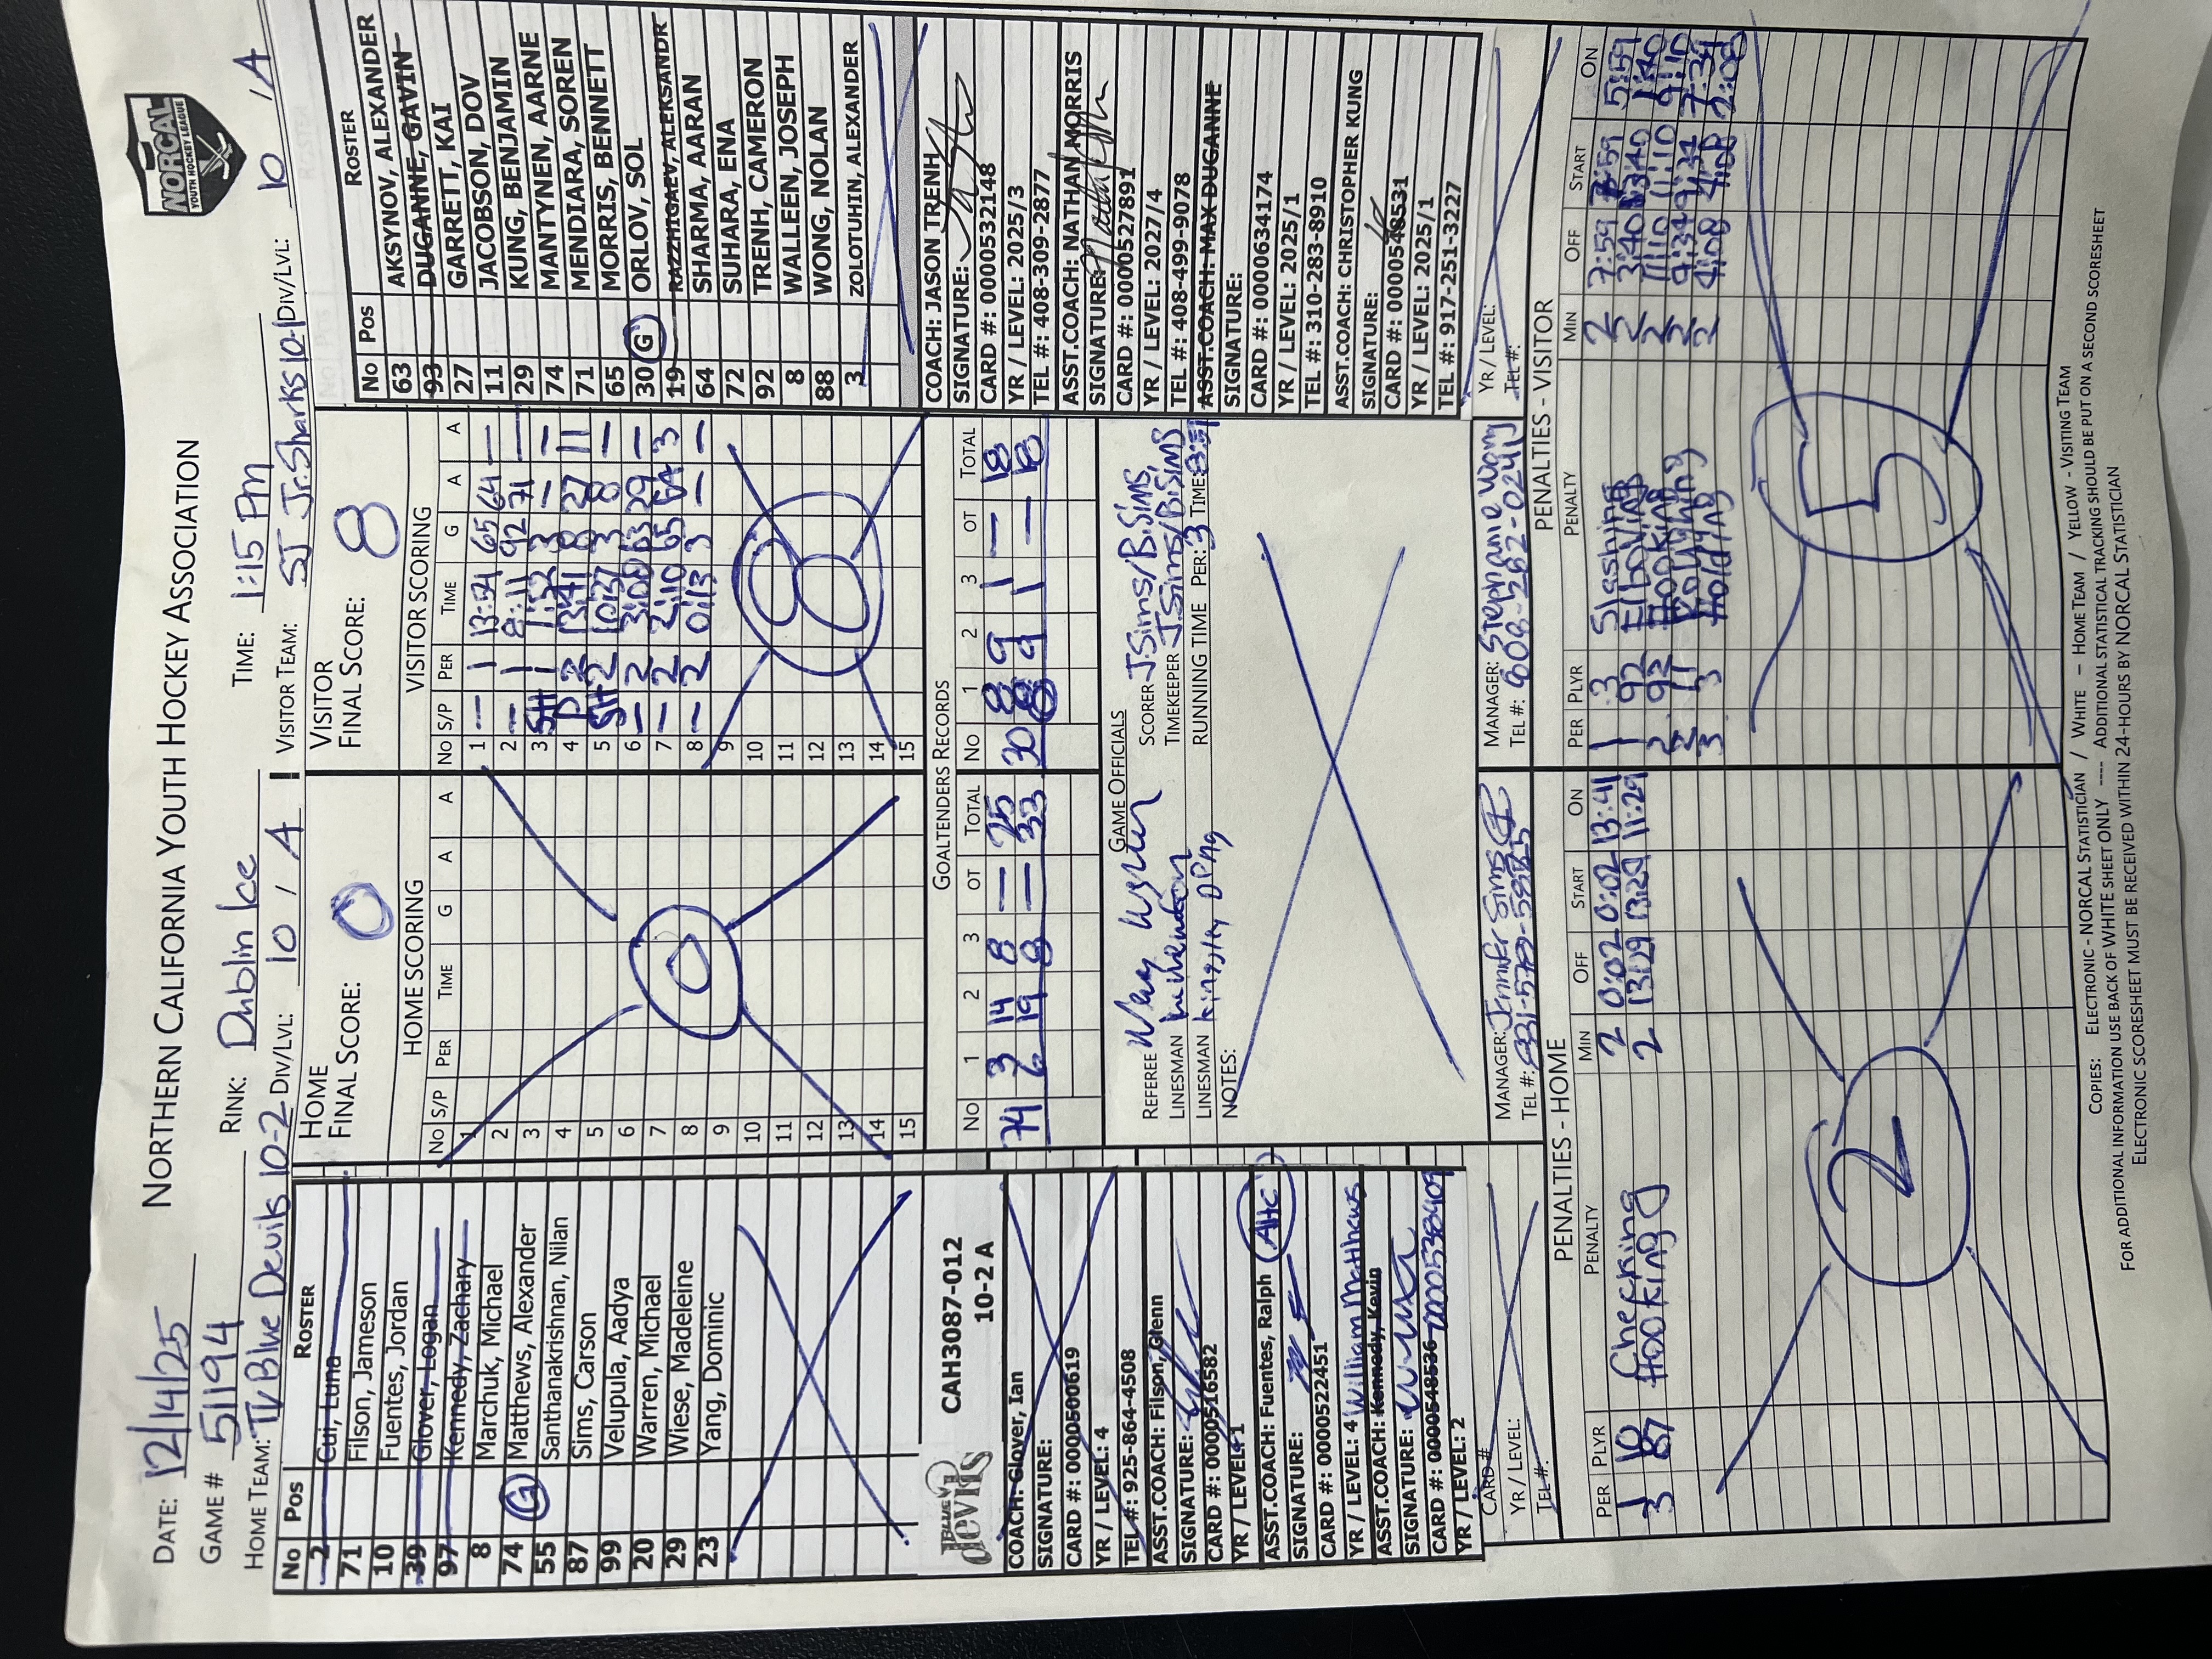 NORTHERN CALIFORNIA YOUTH HOCKEY ASSOCIATION
NORCAL
YOUTH HOCKEY LEAGUE
DATE: 12/14/25
RINK: Dublin Ice
TIME: 1:15 PM
GAME # 51194
HOME TEAM: TV Blue Devils 10-2 DIV/LVL: 10 / A
VISITOR TEAM: SJ Jr. Sharks 10-1 DIV/LVL: 10 / A
No Pos ROSTER
2 Cui, Luna
71 Filson, Jameson
10 Fuentes, Jordan
39 Glover, Logan
97 Kennedy, Zachary
8 Marchuk, Michael
74 G Matthews, Alexander
55 Santhanakrishnan, Nilan
87 Sims, Carson
99 Velupula, Aadya
20 Warren, Michael
29 Wiese, Madeleine
23 Yang, Dominic
BLUE devils
CAH3087-012
10-2 A
COACH: Glover, Ian
SIGNATURE:
CARD #: 0000500619
YR / LEVEL: 4
TEL #: 925-864-4508
ASST.COACH: Filson, Glenn
SIGNATURE:
CARD #: 0000516582
YR / LEVEL: 1
ASST.COACH: Fuentes, Ralph AHC
SIGNATURE:
CARD #: 0000522451
YR / LEVEL: 4 William Matthews
ASST.COACH: Kennedy, Kevin
SIGNATURE:
CARD #: 0000548536
YR / LEVEL: 2
CARD #
YR / LEVEL:
TEL #:
HOME
FINAL SCORE: 0
HOME SCORING
No S/P PER TIME G A A
1
2
3
4
5
6
7
8
9
10
11
12
13
14
15
0
VISITOR
FINAL SCORE: 8
VISITOR SCORING
No S/P PER TIME G A A
1 — 1 13:54 65 64 —
2 — 1 8:11 92 71 —
3 SH 1 1:52 3 — —
4 PP 2 13:41 8 27 11
5 SH 2 10:37 3 8 —
6 — 2 3:00 63 29 —
7 — 2 2:10 65 64 3
8 — 2 0:13 3 — —
9
10
11
12
13
14
15
8
GOALTENDERS RECORDS
No 1 2 3 OT TOTAL
74 3 14 8 — 25
6 19 8 — 33
No 1 2 3 OT TOTAL
30 8 9 1 — 18
8 9 1 — 18
GAME OFFICIALS
REFEREE
LINESMAN
LINESMAN
SCORER J.Sims/B.Sims
TIMEKEEPER J.Sims/B.Sims
RUNNING TIME PER: 3 TIME:
NOTES:
No Pos ROSTER
63 AKSYNOV, ALEXANDER
93 DUGANNE, GAVIN
27 GARRETT, KAI
11 JACOBSON, DOV
29 KUNG, BENJAMIN
74 MANTYNEN, AARNE
71 MENDIARA, SOREN
65 MORRIS, BENNETT
30 G ORLOV, SOL
19 RAZZHIGAEV, ALEKSANDR
64 SHARMA, AARAN
72 SUHARA, ENA
92 TRENH, CAMERON
8 WALLEEN, JOSEPH
88 WONG, NOLAN
3 ZOLOTUHIN, ALEXANDER
COACH: JASON TRENH
SIGNATURE:
CARD #: 0000532148
YR / LEVEL: 2025/3
TEL #: 408-309-2877
ASST.COACH: NATHAN MORRIS
SIGNATURE:
CARD #: 0000527891
YR / LEVEL: 2027/4
TEL #: 408-499-9078
ASST.COACH: MAX DUGANNE
SIGNATURE:
CARD #: 0000634174
YR / LEVEL: 2025/1
TEL #: 310-283-8910
ASST.COACH: CHRISTOPHER KUNG
SIGNATURE:
CARD #: 0000548531
YR / LEVEL: 2025/1
TEL #: 917-251-3227
YR / LEVEL:
TEL #:
MANAGER: Jennifer Sims
TEL #:
MANAGER: Stephanie Wong
TEL #:
PENALTIES - HOME
PER PLYR PENALTY MIN OFF START ON
1 10 Checking 2 0:02 0:02 13:41
3 87 Hooking 2 13:29 13:29 11:29
2
PENALTIES - VISITOR
PER PLYR PENALTY MIN OFF START ON
1 3 Slashing 2 7:59 7:59 5:59
1 92 Elbowing 2 3:40 3:40 1:40
2 92 Hooking 2 11:10 11:10 9:10
2 11 Roughing 2 9:34 9:34 7:34
3 3 Holding 2 4:08 4:08 2:08
5
COPIES: ELECTRONIC - NORCAL STATISTICIAN / WHITE – HOME TEAM / YELLOW - VISITING TEAM
FOR ADDITIONAL INFORMATION USE BACK OF WHITE SHEET ONLY ---- ADDITIONAL STATISTICAL TRACKING SHOULD BE PUT ON A SECOND SCORESHEET
ELECTRONIC SCORESHEET MUST BE RECEIVED WITHIN 24-HOURS BY NORCAL STATISTICIAN